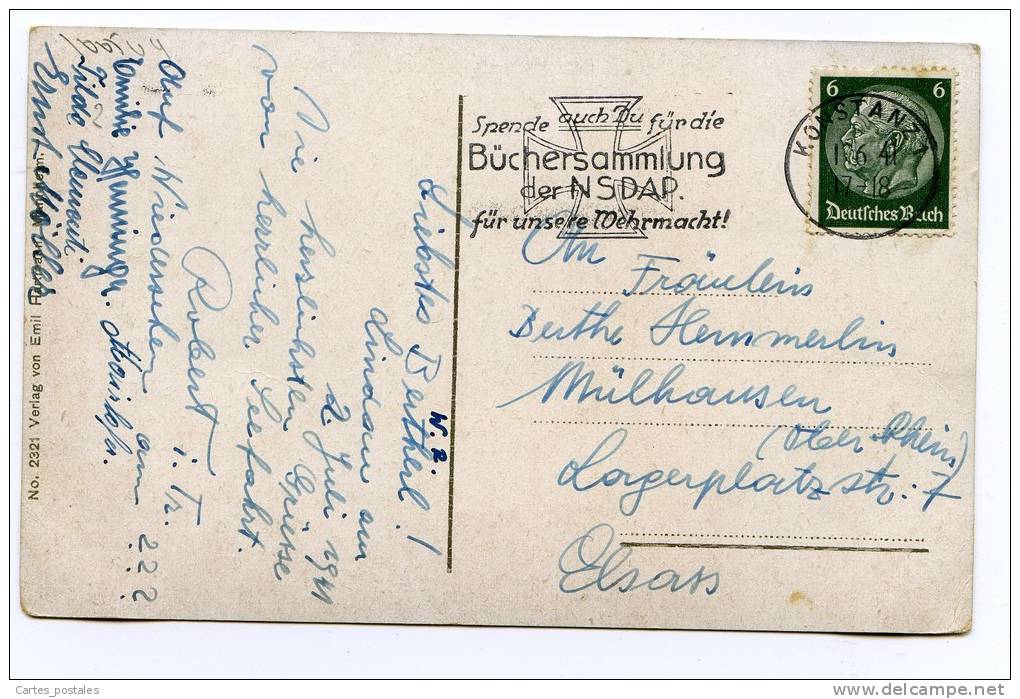 Spende auch Du für die
Büchersammlung
der NSDAP.
für unsere Wehrmacht!
KONSTANZ
6 41
17-18
6 6
Deutsches Reich
An
Fräulein
Berthe Hemmerlin
Mülhausen
(Ober Rhein)
Lagerplatzstr. 7
Elsass
W. 2.
Liebstes Bertherl!
Lindau am
2 Juli 1941
Die herzlichsten Grüsse
von herrlicher Seefahrt.
Robert i. Tr.
Auf Wiedersehen am ???
Emilie
Tilda
Ernst Müller
No. 2321 Verlag von Emil